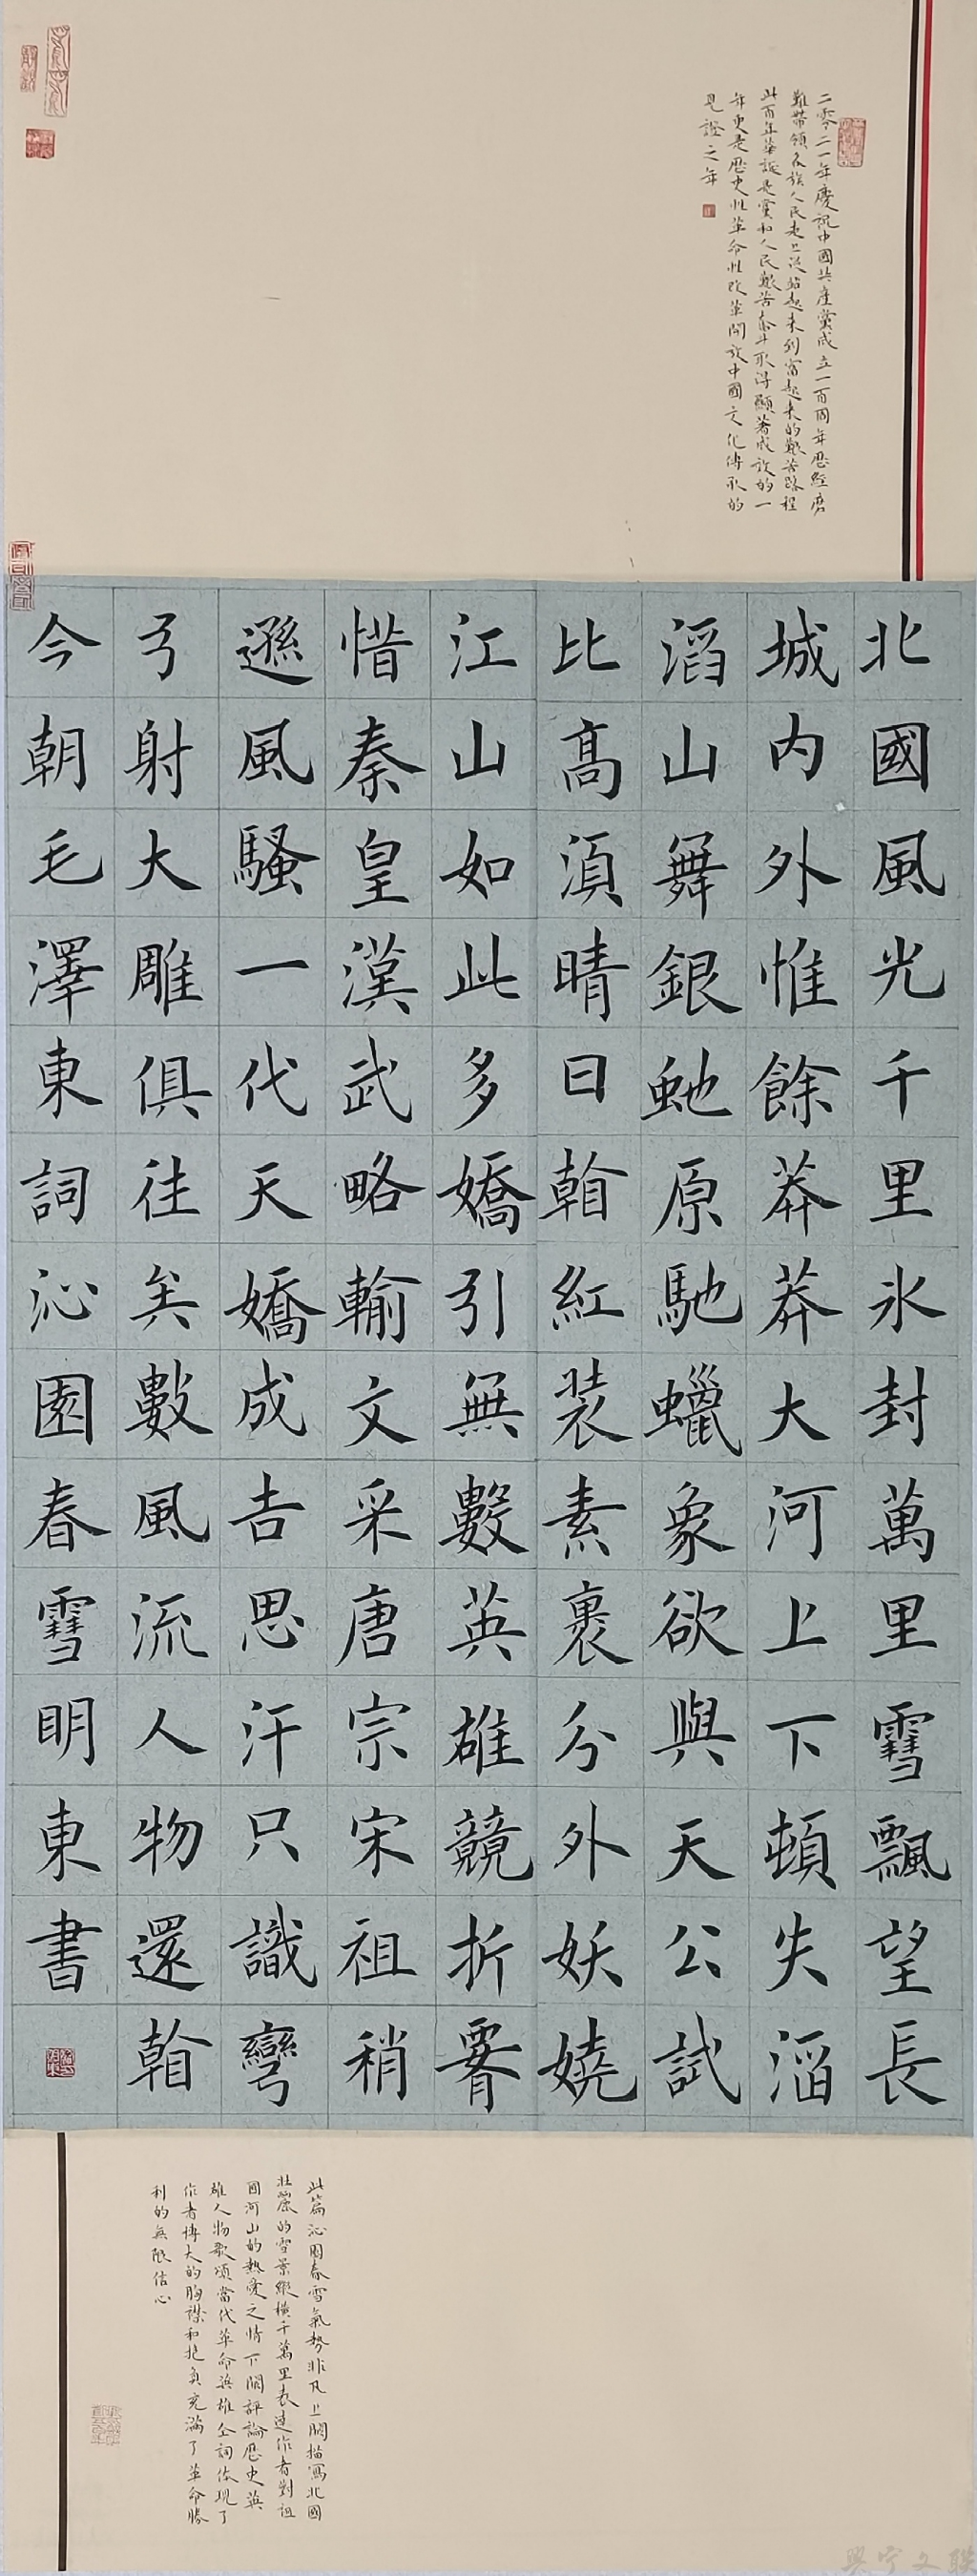 二零二一年慶祝中國共產黨成立一百周年歷經磨
難帶領各族人民走上從站起來到富起來的艱苦路程
此百年華誕是黨和人民艱苦奮斗取得顯著成效的一
年更是歷史性革命性改革開放中國文化傳承的
見證之年
北國風光千里氷封萬里雪飄望長
城内外惟餘莽莽大河上下頓失滔
滔山舞銀虵原馳蠟象欲與天公試
比高須晴日看紅装素裹分外妖嬈
江山如此多嬌引無數英雄競折腰
惜秦皇漢武略輸文采唐宗宋祖稍
遜風騷一代天嬌成吉思汗只識彎
弓射大雕俱往矣數風流人物還看
今朝毛澤東詞沁園春雪明東書
此篇沁園春雪氣勢非凡上闋描寫北國
壯麗的雪景縱橫千萬里表達作者對祖
國河山的熱愛之情下闋評論歷史英
雄人物歌頌當代革命英雄全詞体現了
作者博大的胸襟和抱負充滿了革命勝
利的無限信心
興寧文聯